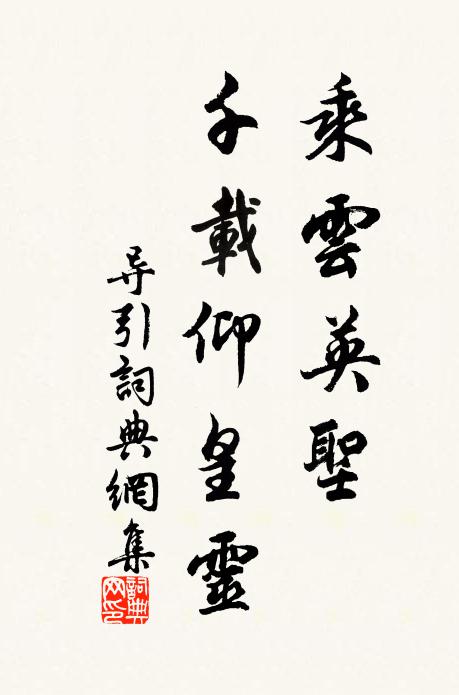 乘雲英聖
千載仰皇靈
导引詞典網集
詞典
网印